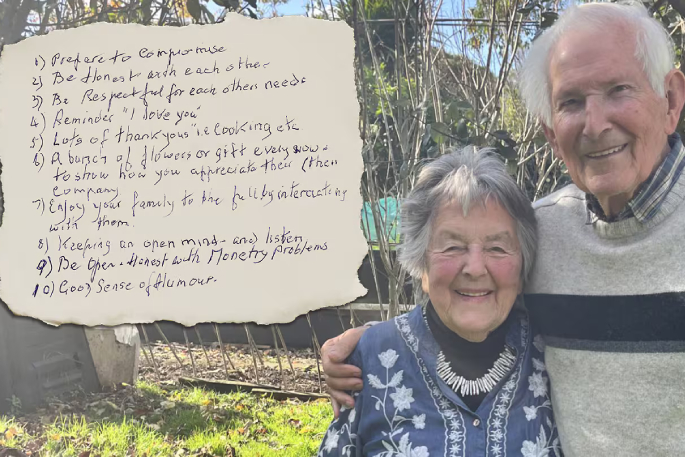 1) Prepare to Compromise
2) Be Honest with each other
3) Be Respectful for each others needs
4) Reminder "I love you"
5) Lots of thankyous i.e cooking etc
6) A bunch of flowers or gift every now -
to show how you appreciate their (their
company
7) Enjoy your family to the full by interacting
with them.
8) Keeping an open mind - and listen
9) Be Open - Honest with Monetry Problems
10) Good Sense of Humour.